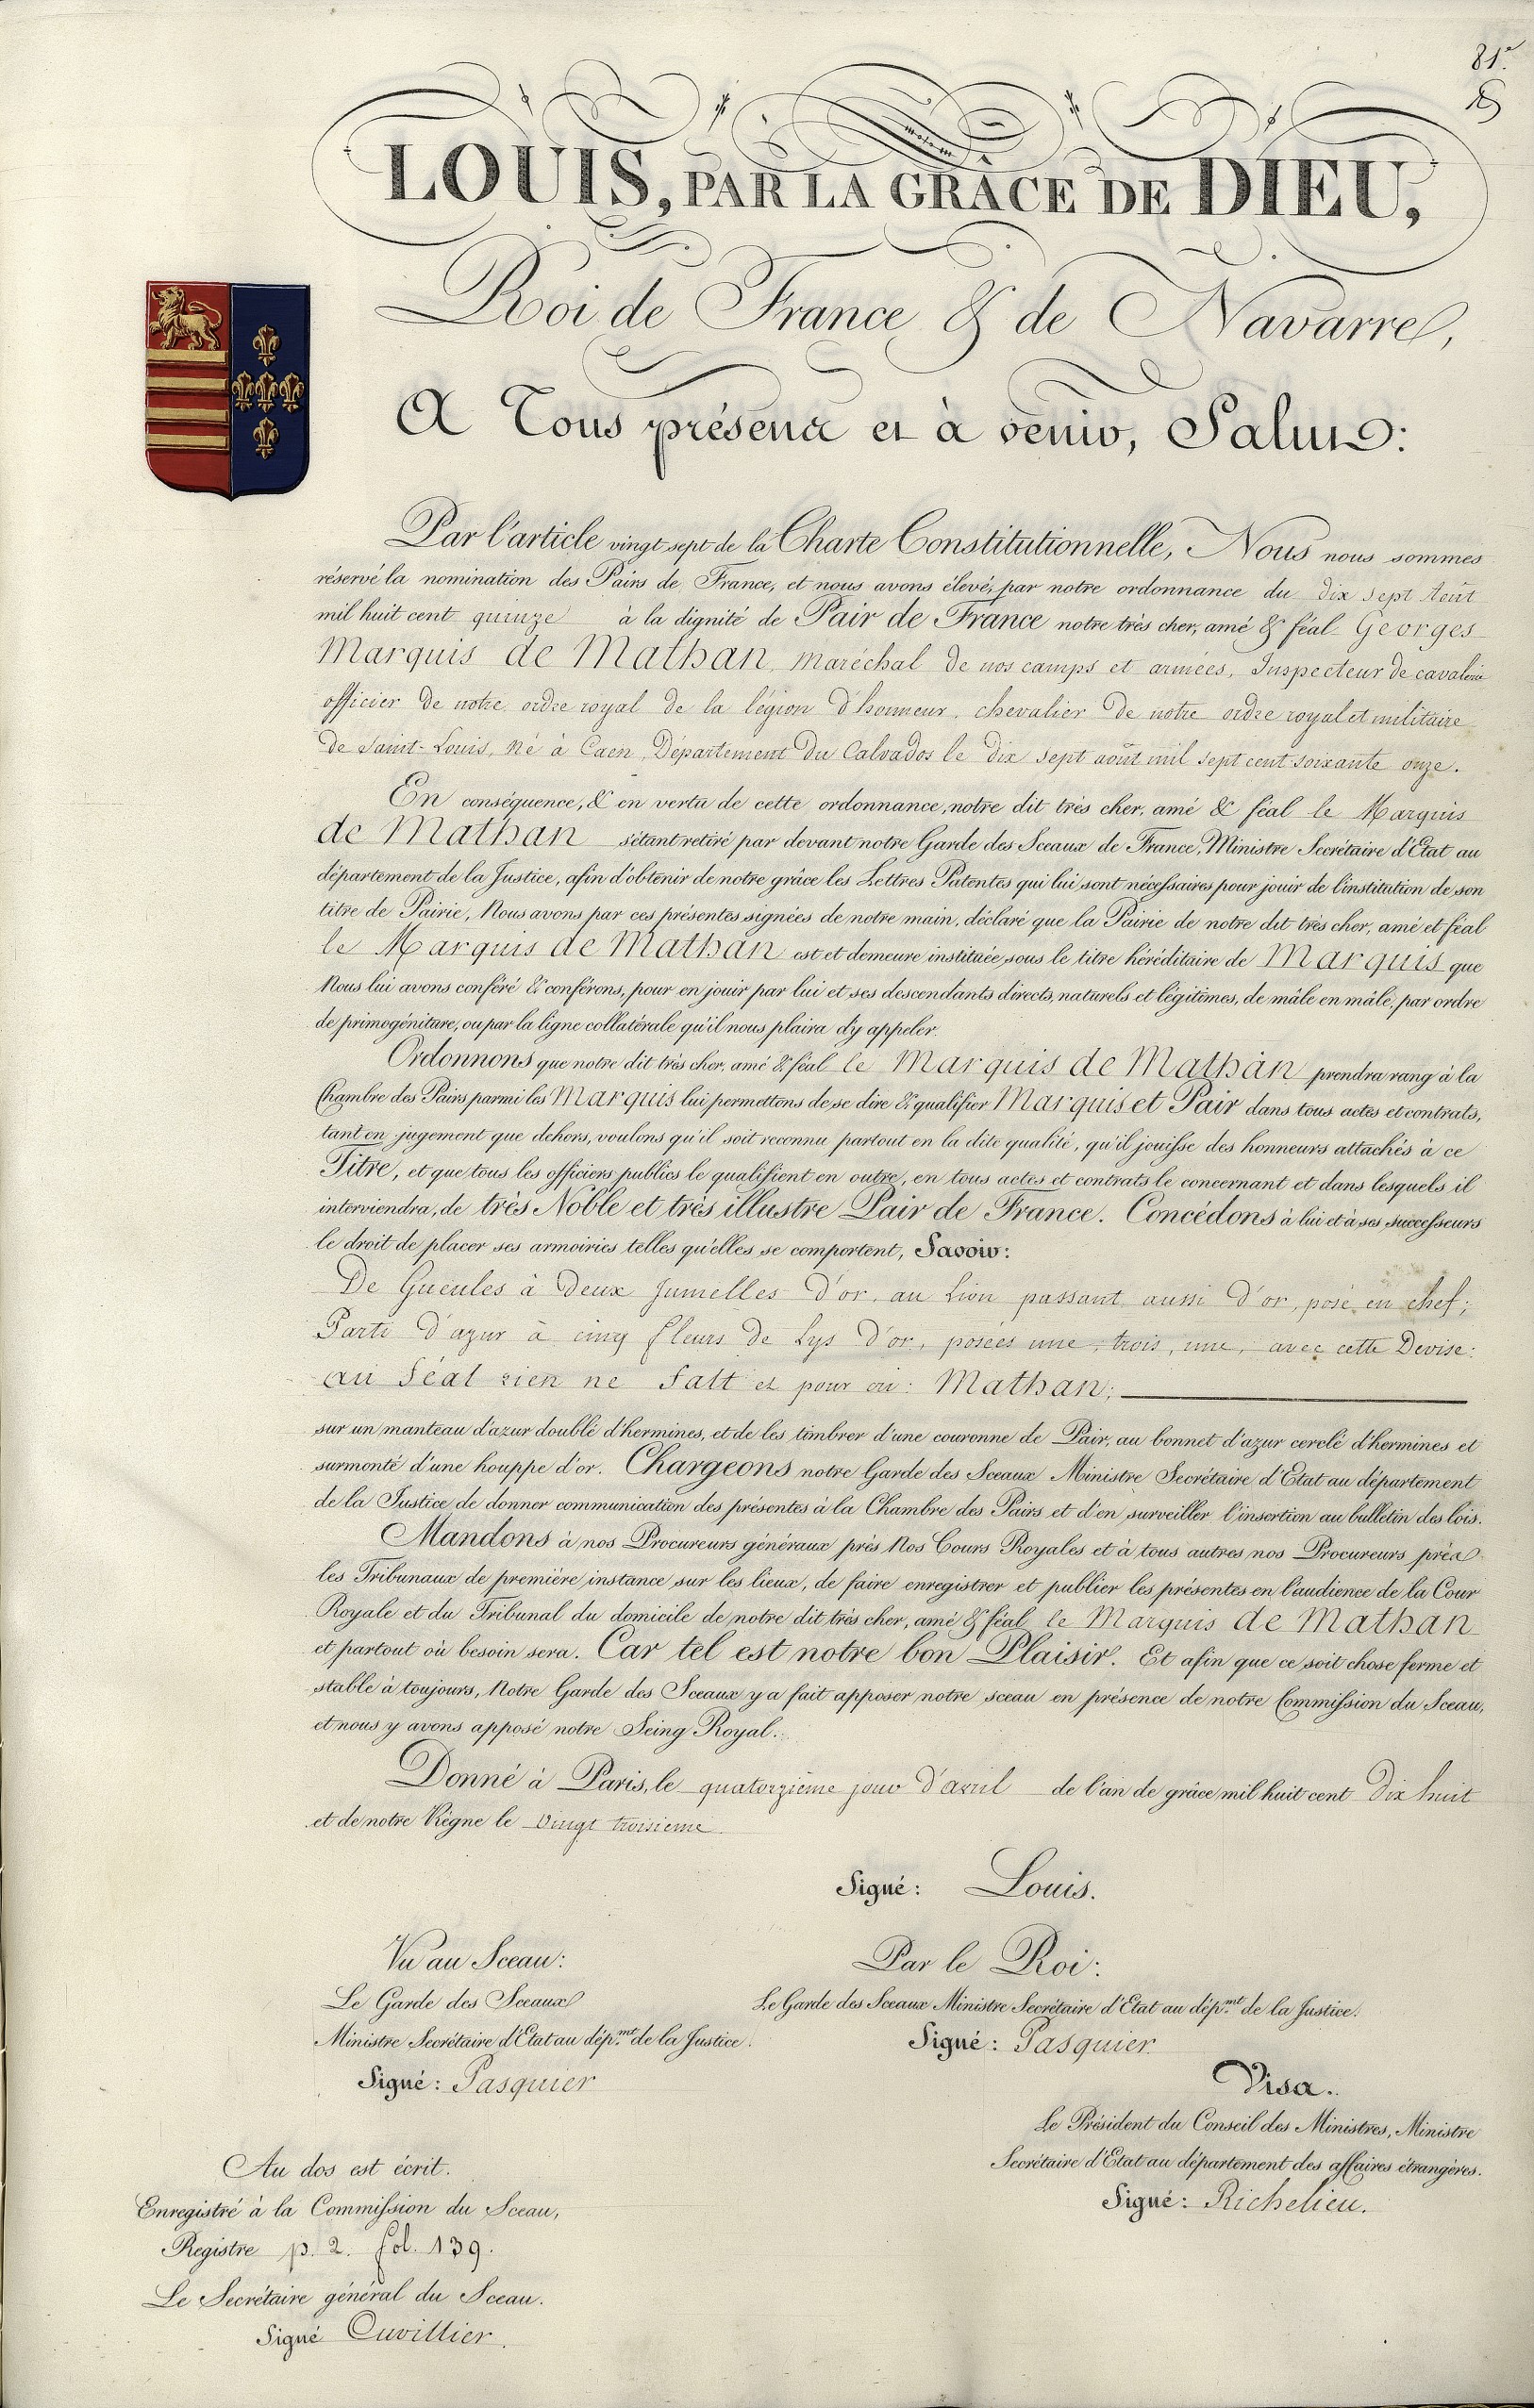 81.e
LOUIS, PAR LA GRÂCE DE DIEU,
Roi de France & de Navarre,
A Tous présens et à venir, Salut:
Par l'article vingt sept de la Charte Constitutionnelle, Nous nous sommes
réservé la nomination des Pairs de France, et nous avons élevé, par notre ordonnance du dix sept Août
mil huit cent quinze à la dignité de Pair de France notre très cher, amé & féal Georges
Marquis de Mathan, maréchal de nos camps et armées, Inspecteur de cavalerie
officier de notre ordre royal de la légion d'honneur, chevalier de notre ordre royal et militaire
de Saint-Louis, Né à Caen, Département du Calvados le dix sept août mil sept cent soixante onze.
En conséquence, & en vertu de cette ordonnance, notre dit très cher, amé & féal le Marquis
de Mathan s'étant retiré par devant notre Garde des Sceaux de France, Ministre Secrétaire d'Etat au
département de la Justice, afin d'obtenir de notre grâce les Lettres Patentes qui lui sont nécessaires pour jouir de l'institution de son
titre de Pairie, Nous avons par ces présentes signées de notre main, déclaré que la Pairie de notre dit très cher, amé et féal
le Marquis de Mathan est et demeure instituée sous le titre héréditaire de Marquis que
Nous lui avons conféré & conférons, pour en jouir par lui et ses descendants directs, naturels et légitimes, de mâle en mâle, par ordre
de primogéniture, ou par la ligne collatérale qu'il nous plaira d'y appeler.
Ordonnons que notre dit très cher, amé & féal le Marquis de Mathan prendra rang à la
Chambre des Pairs parmi les Marquis lui permettons de se dire & qualifier Marquis et Pair dans tous actes et contrats,
tant en jugement que dehors, voulons qu'il soit reconnu partout en la dite qualité, qu'il jouisse des honneurs attachés à ce
Titre, et que tous les officiers publics le qualifient en outre, en tous actes et contrats le concernant et dans lesquels il
interviendra, de très Noble et très illustre Pair de France. Concédons à lui et à ses successeurs
le droit de placer ses armoiries telles qu'elles se comportent, Savoir:
De Gueules à deux Jumelles d'or, au Lion passant aussi d'or, posé en chef;
Parti d'azur à cinq fleurs de Lys d'or, posées une, trois, une, avec cette Devise:
au féal rien ne falt et pour cri: Mathan;
sur un manteau d'azur doublé d'hermines, et de les timbrer d'une couronne de Pair, au bonnet d'azur cerclé d'hermines et
surmonté d'une houppe d'or. Chargeons notre Garde des Sceaux Ministre Secrétaire d'Etat au département
de la Justice de donner communication des présentes à la Chambre des Pairs et d'en surveiller l'insertion au bulletin des lois.
Mandons à nos Procureurs généraux près Nos Cours Royales et à tous autres nos Procureurs près
les Tribunaux de première instance sur les lieux, de faire enregistrer et publier les présentes en l'audience de la Cour
Royale et du Tribunal du domicile de notre dit très cher, amé & féal le Marquis de Mathan
et partout où besoin sera. Car tel est notre bon Plaisir. Et afin que ce soit chose ferme et
stable à toujours, Notre Garde des Sceaux y a fait apposer notre sceau en présence de notre Commission du Sceau,
et nous y avons apposé notre Seing Royal.
Donné à Paris, le quatorzième jour d'avril de l'an de grâce mil huit cent dix huit
et de notre Règne le vingt troisieme
Signé: Louis.
Vu au Sceau:
Le Garde des Sceaux
Ministre Secrétaire d'Etat au dép.mt de la Justice.
Signé: Pasquier
Par le Roi:
Le Garde des Sceaux Ministre Secrétaire d'Etat au dép.mt de la Justice.
Signé: Pasquier
Visa.
Le Président du Conseil des Ministres, Ministre
Secrétaire d'Etat au département des affaires étrangères.
Signé: Richelieu.
Au dos est écrit.
Enregistré à la Commission du Sceau,
Registre p. 2. fol. 139.
Le Secrétaire général du Sceau.
Signé Cuvillier.